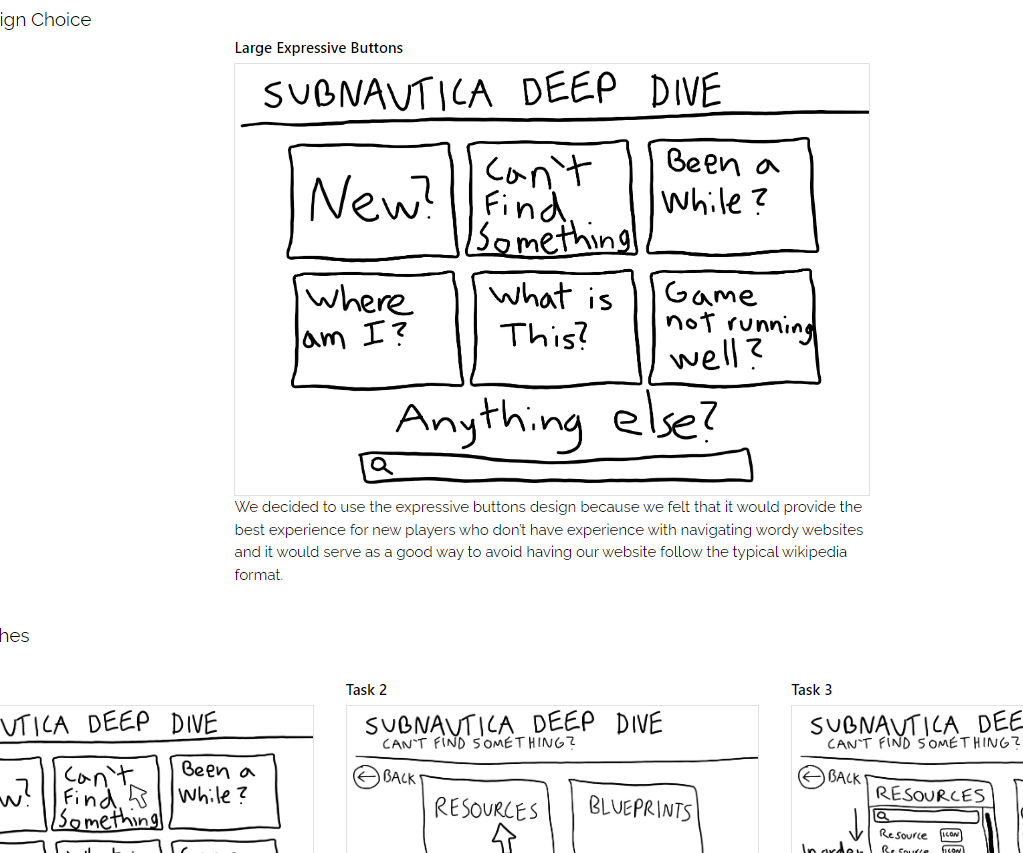 ign Choice
Large Expressive Buttons
SUBNAUTICA DEEP DIVE
New?
Can't
Find
Something
Been a
While?
Where
am I?
What is
This?
Game
not running
well?
Anything else?
We decided to use the expressive buttons design because we felt that it would provide the
best experience for new players who don't have experience with navigating wordy websites
and it would serve as a good way to avoid having our website follow the typical wikipedia
format.
hes
UTICA DEEP DIVE
w?
Can't
Find
Something
Been a
While?
Task 2
SUBNAUTICA DEEP DIVE
CAN'T FIND SOMETHING?
BACK
RESOURCES
BLUEPRINTS
Task 3
SUBNAUTICA DEE
CAN'T FIND SOMETHING?
BACK
RESOURCES
In order
Resource ICON
Resource ICON